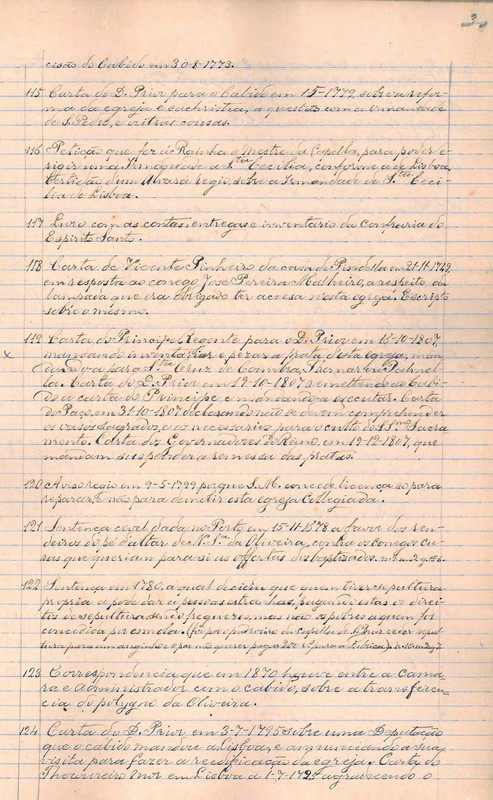 3
cisão do Cabido em 30-8-1773.
115 Carta do D. Prior para o Cabido em 1779, sobre a refor-
ma da egreja e sachristia, a questão com a Irmandade
de S. Pedro, e outras cousas.
116 Petição que fez á Rainha o Mestre da Capella, para poder e-
rigir uma Irmandade a S.ta Cecilia, conforme a de Lisboa.
Certidão d'um Alvará regio, sobre a Irmandade de S.ta Ceci-
lia de Lisboa.
117 Livro com as contas, entregas e inventario da confraria do
Espirito Santo.
118 Carta de Vicente Pinheiro da casa de Pindella em 21-11-1749,
em resposta ao conego José Pereira Malheiro, a respeito da
lampada que era obrigado ter accesa nesta egreja. Escripto
sobre o mesmo.
119 Carta do Principe Regente para o D. Prior em 15-10-1807,
x mandando inventariar e pezar a prata d'esta egreja, man-
dando-a para S.ta Cruz de Coimbra, Thomar ou Palmel-
la. Carta do D. Prior em 19-10-1807 remettendo ao Cabi-
do a carta do Principe e mandando-a executar. Carta
do Paço, em 31-10-1807 declarando não se devem comprehender
os vasos sagrados, e os necessarios para o culto do SS.mo Sacra-
mento. Carta dos Governadores do Reino, em 19-12-1807, que
mandam suspender a remessa das pratas.
120 Aviso regio em 9-5-1799 porque S. M. concede licença só para
reparar, e não para demolir esta egreja Collegiada.
121 Sentença civel dada no Porto em 15-11-1578 a favor dos ren-
deiros do pé d'altar de N. S.ra da Oliveira, contra os conegos cu-
ras que queriam para si as offertas dos baptizados.
122 Sentença em 1780, a qual decidiu que quem tiver sepultura
propria a póde dar a pessoas estranhas, pagando estas os direi-
tos de sepultura, sendo freguezes, mas não os pobres a quem for
concedida por esmola.
123 Correspondencia que em 1870 houve entre a Cama-
ra e Administrador com o cabido, sobre a transferen-
cia do polygno da Oliveira.
124 Carta do D. Prior em 3-7-1795 sobre uma Deputação
que o cabido mandou a Lisboa, e annunciando a sua
visita para fazer a reedificação da egreja. Carta do
Thezoureiro Mor em Lisboa a 1-7-1795 agradecendo o